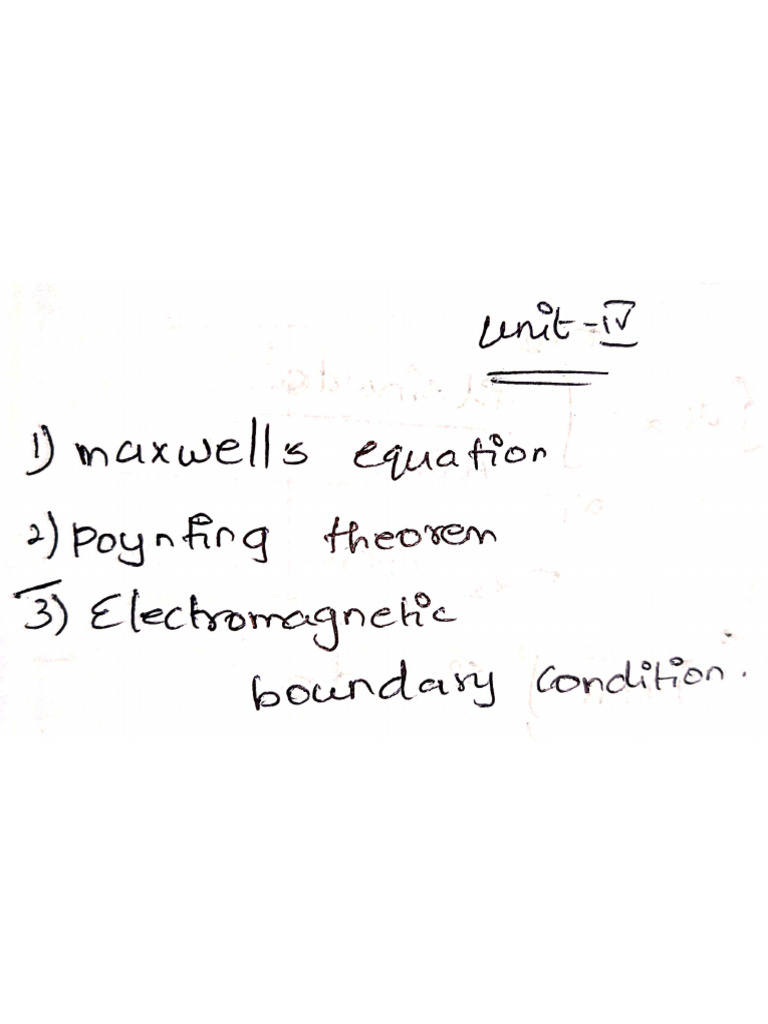 Unit-IV
1) maxwell's equation
2) Poynting theorem
3) Electromagnetic
boundary condition.